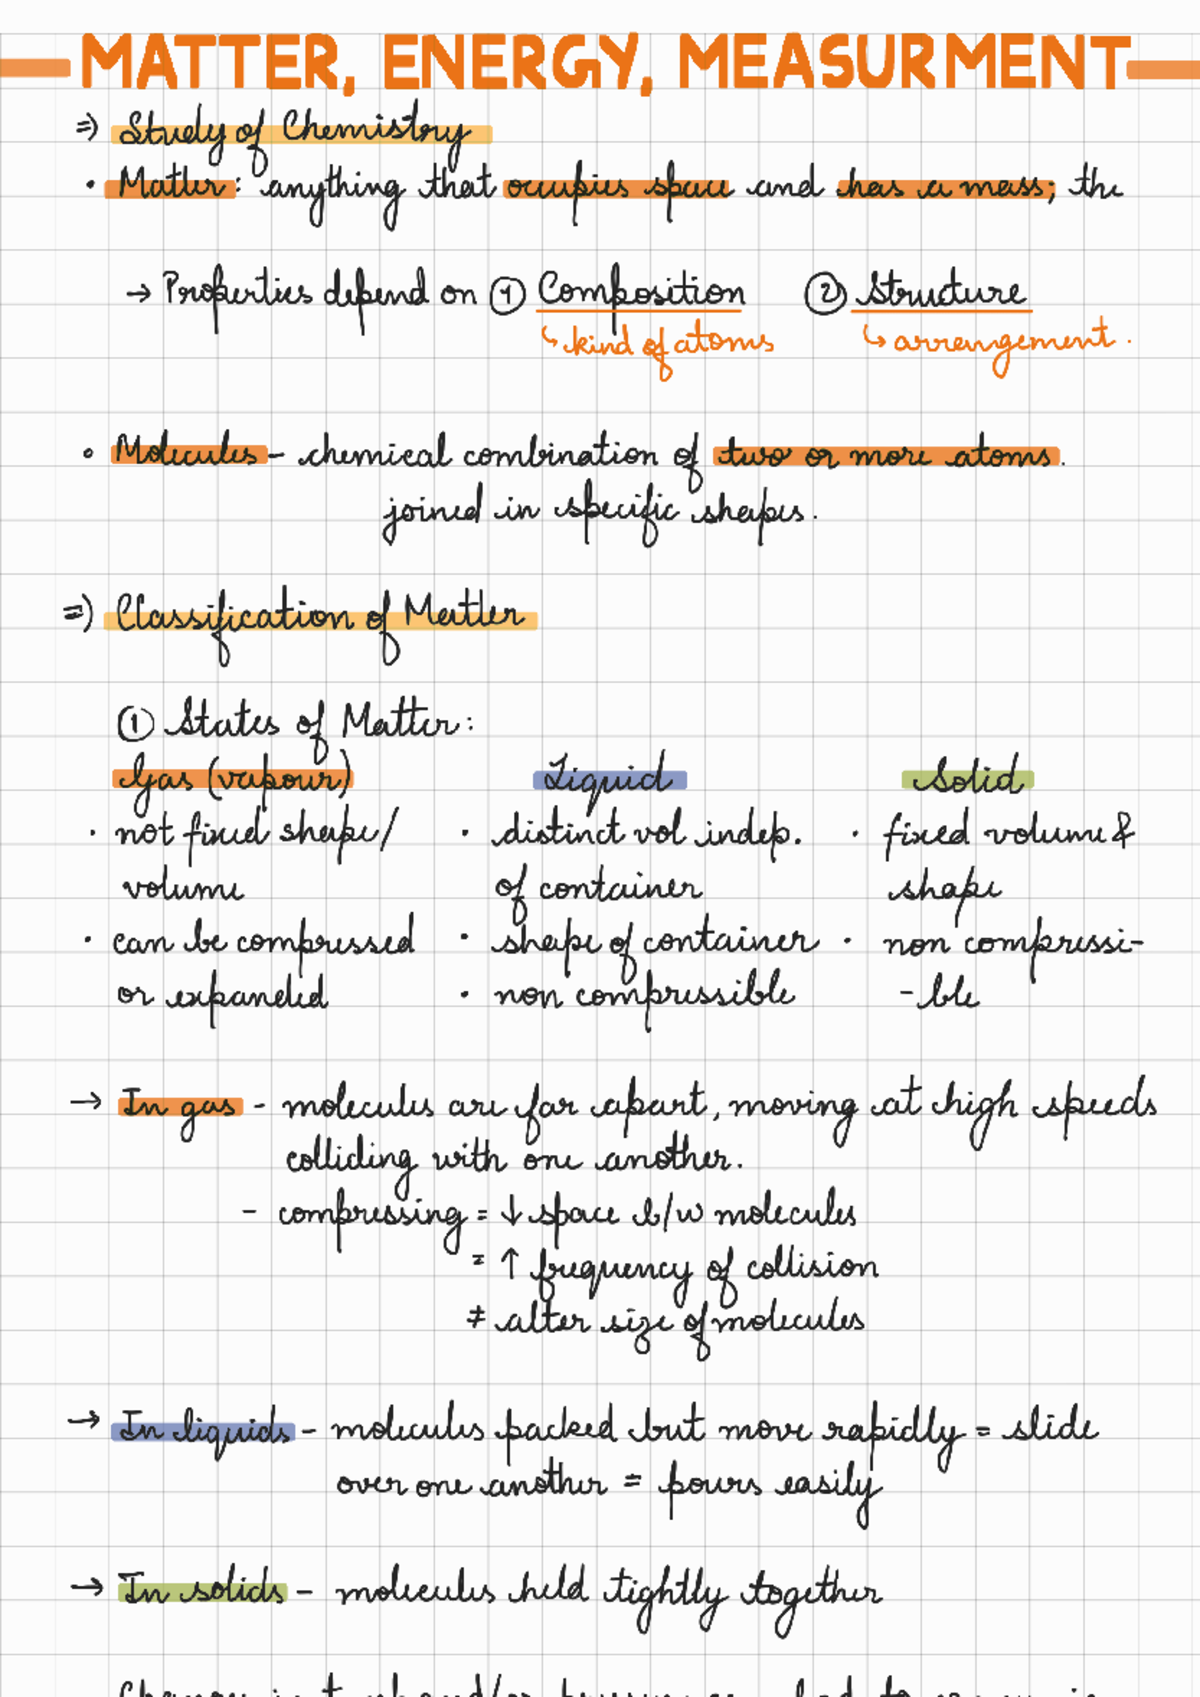 MATTER, ENERGY, MEASURMENT
⇒ Study of Chemistry
• Matter: anything that occupies space and has a mass; the
→ Properties depend on ① Composition ② Structure
↳ kind of atoms ↳ arrangement.
• Molecules - chemical combination of two or more atoms.
joined in specific shapes.
⇒ Classification of Matter
① States of Matter:
Gas (vapour) Liquid Solid
• not fixed shape/ • distinct vol indep. • fixed volume &
volume of container shape
• can be compressed • shape of container • non compressi-
or expanded • non compressible -ble
→ In gas - molecules are far apart, moving at high speeds
colliding with one another.
- compressing = ↓ space b/w molecules
= ↑ frequency of collision
≠ alter size of molecules
→ In liquids - molecules packed but move rapidly = slide
over one another = pours easily
→ In solids - molecules held tightly together